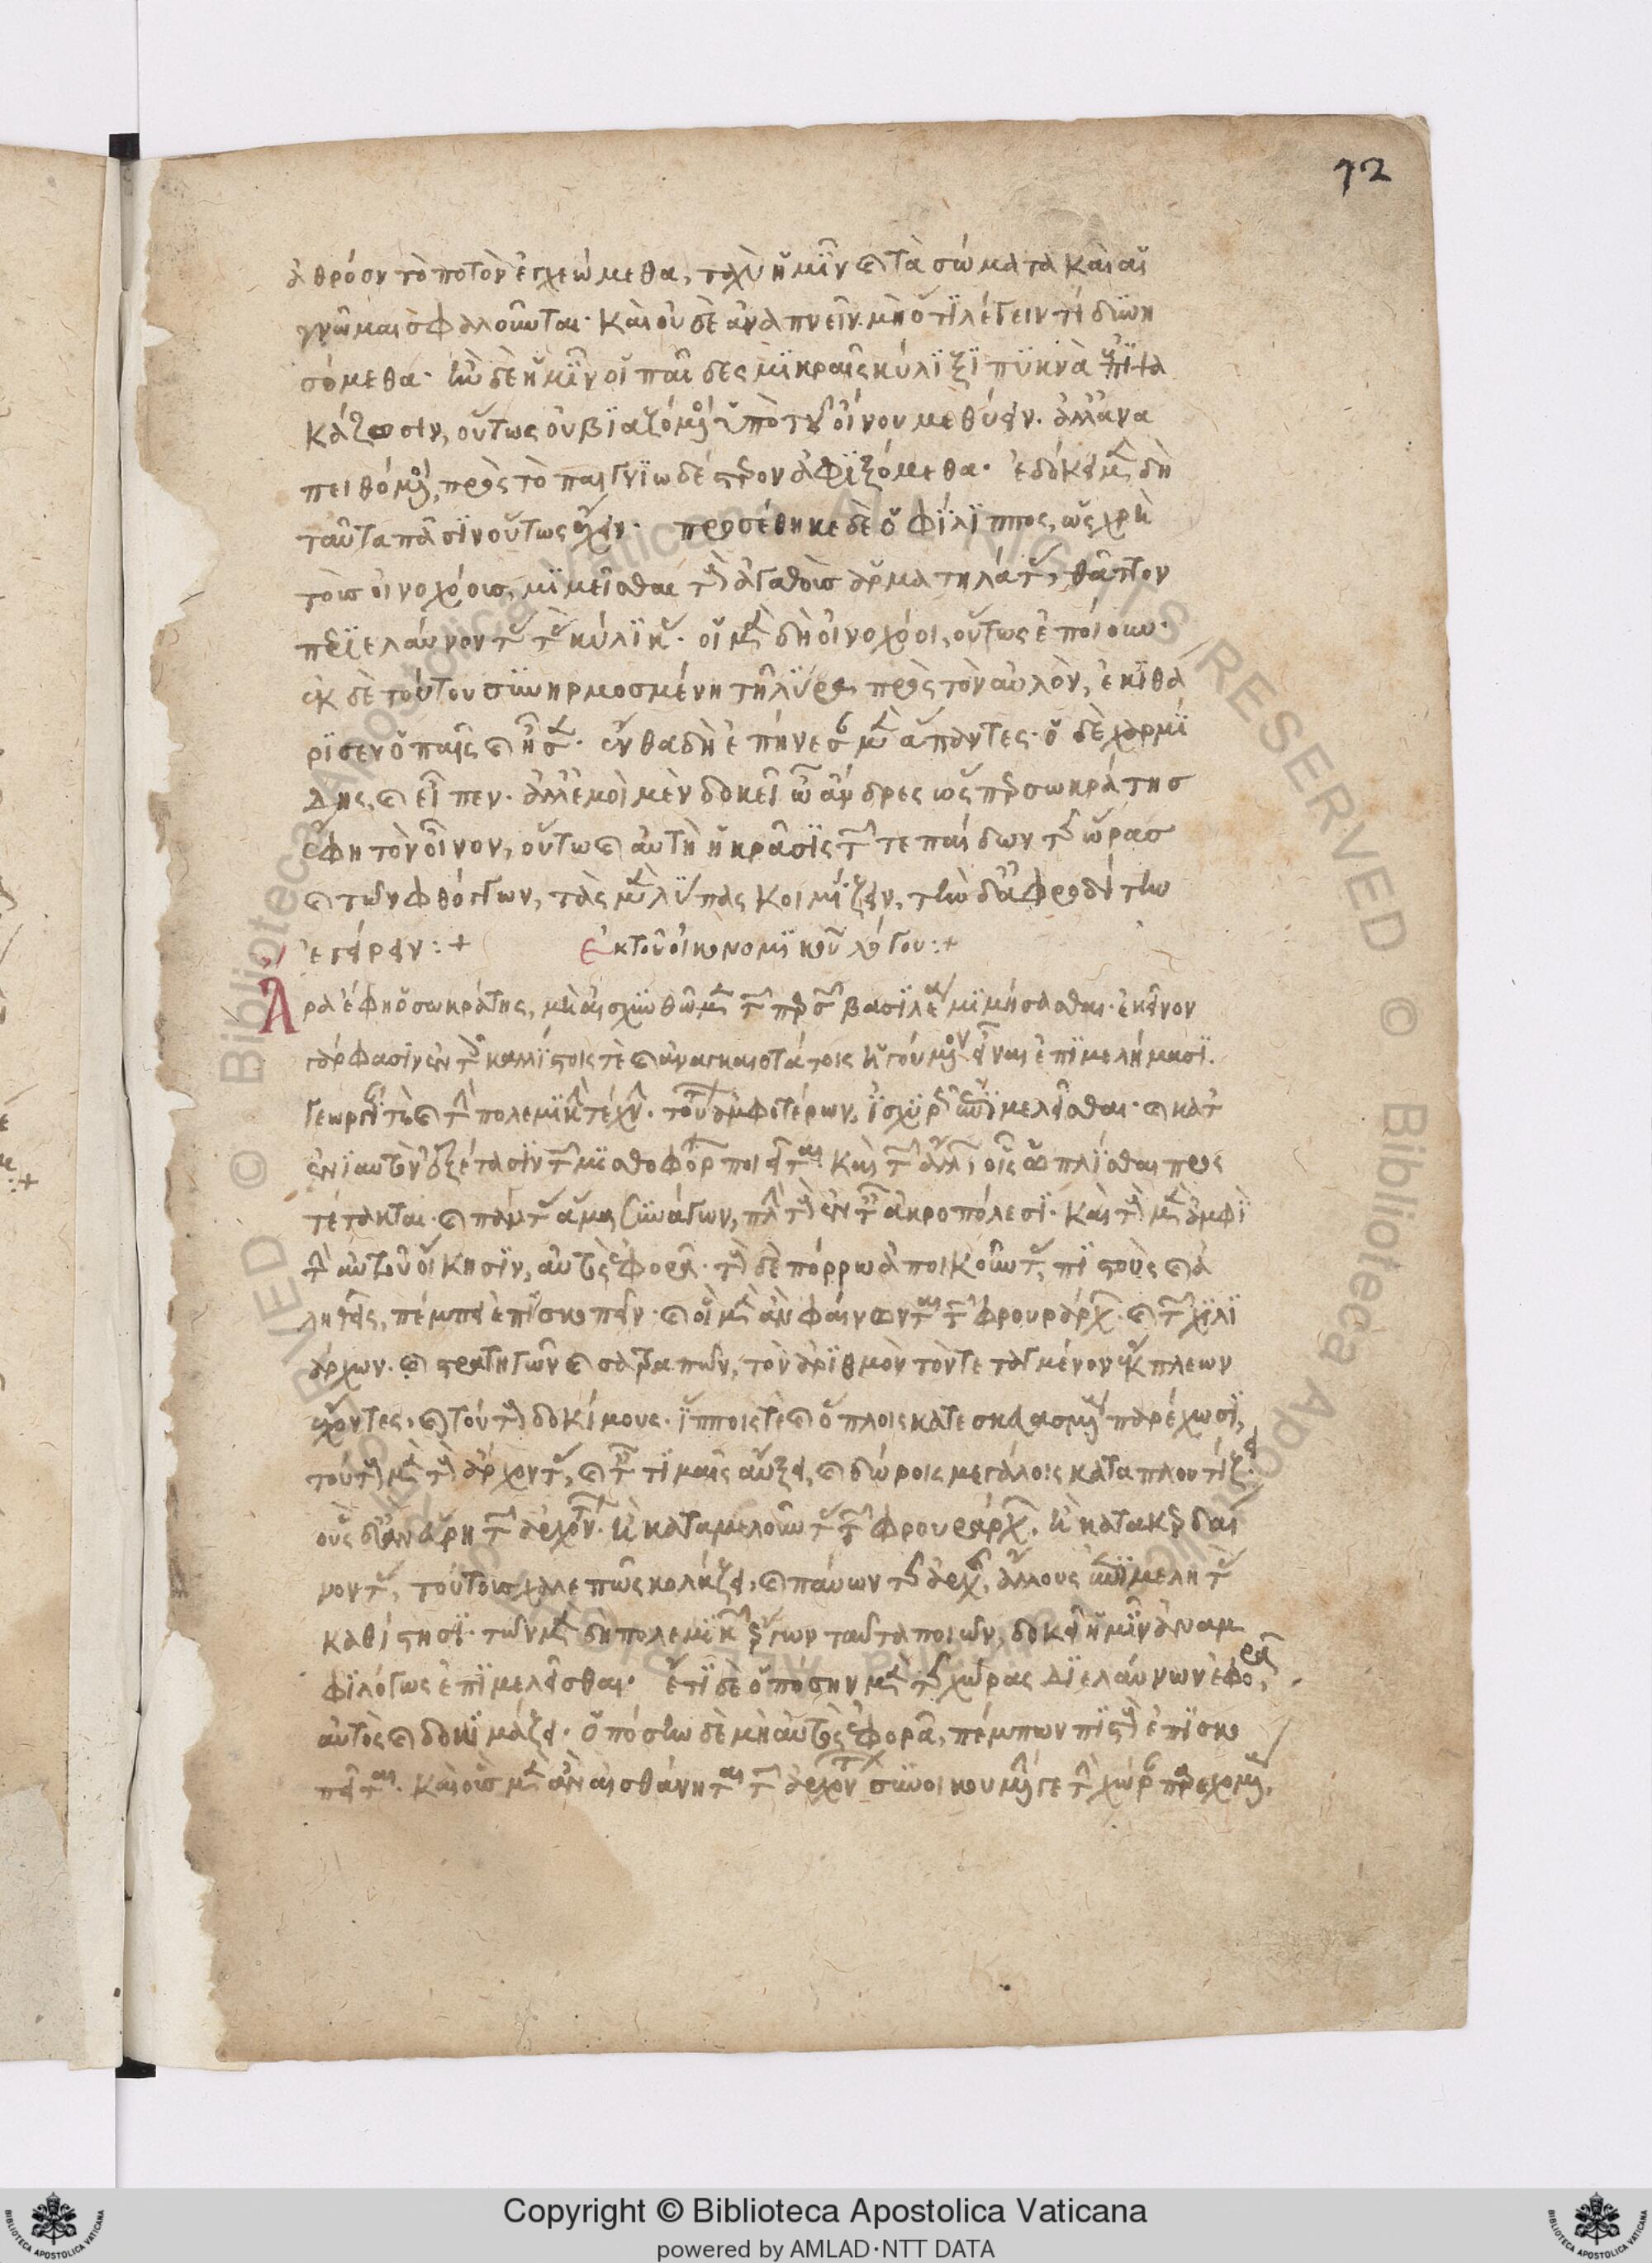 72
ἀθρόον τὸ ποτὸν ἐγχεώμεθα, ταχὺ ἡμῖν καὶ τὰ σώματα καὶ αἱ
γνῶμαι σφαλοῦνται· καὶ οὐδὲ ἀναπνεῖν μὴ ὅτι λέγειν τι δυνη
σόμεθα· ἢν δὲ ἡμῖν οἱ παῖδες μικραῖς κύλιξι πυκνὰ ἐπιψα
κάζωσιν, οὕτως οὐ βιαζόμενοι ὑπὸ τοῦ οἴνου μεθύειν. ἀλλ' ἀνα
πειθόμενοι, πρὸς τὸ παιγνιωδέστερον ἀφιξόμεθα· ἐδόκει μὲν δὴ
ταῦτα πᾶσιν οὕτως ἔχειν· προσέθηκε δὲ ὁ Φίλιππος, ὡς χρὴ
τοὺς οἰνοχόους, μιμεῖσθαι τοὺς ἀγαθοὺς ἁρματηλάτας, θᾶττον
περιελαύνοντας τὰς κύλικας· οἱ μὲν δὴ οἰνοχόοι, οὕτως ἐποίουν·
ἐκ δὲ τούτου συνηρμοσμένῃ τῇ λύρᾳ πρὸς τὸν αὐλὸν, ἐκιθά
ρισεν ὁ παῖς καὶ ᾖσεν· ἔνθα δὴ ἐπῄνεσαν μὲν ἅπαντες· ὁ δὲ χαρμί
δης καὶ εἶπεν· ἀλλ' ἐμοὶ μὲν δοκεῖ ὦ ἄνδρες ὥσπερ σωκράτης
ἔφη τὸν οἶνον, οὕτω καὶ αὕτη ἡ κρᾶσις τῶν τε παίδων τῆς ὥρας
καὶ τῶν φθόγγων, τὰς μὲν λύπας κοιμίζειν, τὴν δ' ἀφροδίτην
ἐγείρειν :+ Ἐκ τοῦ οἰκονομικοῦ λόγου :+
Ἆρα ἔφη ὁ σωκράτης, μὴ αἰσχυνθῶμεν τὸν περσῶν βασιλέα μιμήσασθαι· ἐκεῖνον
γάρ φασιν ἐν τοῖς καλλίστοις τε καὶ ἀναγκαιοτάτοις ἡγούμενον εἶναι ἐπιμελήμασι.
γεωργίαν τε καὶ τὴν πολεμικὴν τέχνην. τούτων ἀμφοτέρων, ἰσχυρῶς ἐπιμελεῖσθαι· καὶ κατ
ἐνιαυτὸν ἐξέτασιν τῶν μισθοφόρων ποιεῖται καὶ τῶν ἄλλων οἷς ὡπλίσθαι προς
τέτακται. καὶ πάντας ἅμα συνάγων, πλὴν τοὺς ἐν ταῖς ἀκροπόλεσι· καὶ τοὺς μὲν ἀμφὶ
τὴν αὐτοῦ οἴκησιν, αὐτὸς ἐφορᾷ. τοὺς δὲ πόρρω ἀποικοῦντας, πιστοὺς καὶ ἀ
ληθεῖς, πέμπει ἐπισκοπεῖν· καὶ οἳ μὲν ἂν φαίνωνται τῶν φρουράρχων καὶ τῶν χιλι
άρχων· καὶ στρατηγῶν καὶ σατραπῶν, τὸν ἀριθμὸν τόν τεταγμένον ἔκπλεων
ἔχοντες· καὶ τούτους δοκίμους· ἵπποις τε καὶ ὅπλοις κατεσκευασμένους παρέχωσι,
τούτους μὲν τοὺς ἄρχοντας, καὶ ταῖς τιμαῖς αὔξει, καὶ δώροις μεγάλοις καταπλουτίζει.
οὓς δ' ἂν εὕρῃ τῶν ἀρχόντων ἢ καταμελοῦντας τῶν φρουράρχων, ἢ κατακερδαί
νοντας, τούτους χαλεπῶς κολάζει, καὶ παύων τῆς ἀρχῆς, ἄλλους ἐπιμελητὰς
καθίστησι· τῶν μὲν δὴ πολεμικῶν ἔργων ταῦτα ποιῶν, δοκεῖ ἡμῖν ἀναμ
φιλόγως ἐπιμελεῖσθαι· ἔτι δὲ ὁπόσην μὲν τῆς χώρας διελαύνων ἐφορᾷ,
αὐτὸς καὶ δοκιμάζει· ὁπόσην δὲ μὴ αὐτὸς ἐφορᾷ, πέμπων πιστοὺς ἐπισκο
πεῖται. καὶ οὓς μὲν ἂν αἰσθάνηται τῶν ἀρχόντων συνοικουμένην τε τὴν χώραν παρεχομένους,
Copyright © Biblioteca Apostolica Vaticana
powered by AMLAD·NTT DATA